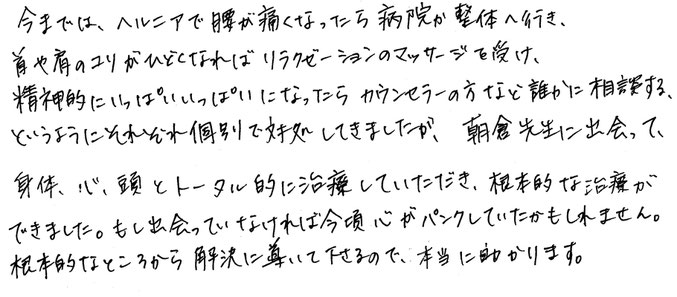 今までは、ヘルニアで腰が痛くなったら病院か整体へ行き、
首や肩のコリがひどくなればリラクゼーションのマッサージを受け、
精神的にいっぱいいっぱいになったらカウンセラーの方など誰かに相談する、
というようにそれぞれ個別で対処してきましたが、朝倉先生に出会って、
身体、心、頭とトータル的に治療していただき、根本的な治療が
できました。もし出会っていなければ今頃心がパンクしていたかもしれません。
根本的なところから解決に導いて下さるので、本当に助かります。